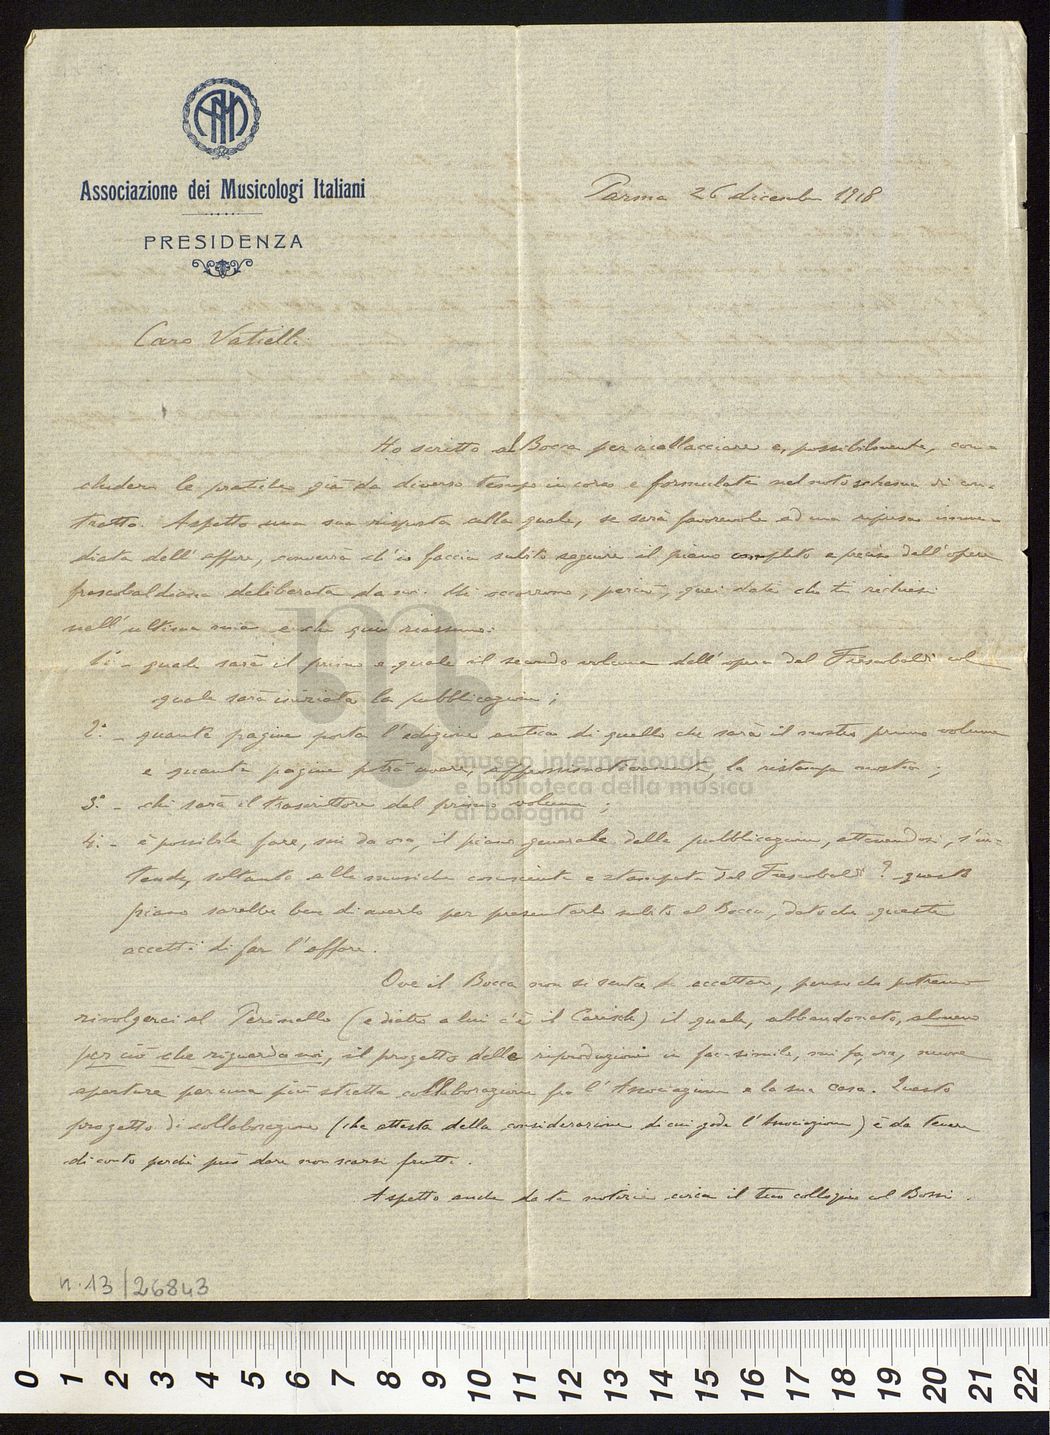 Associazione dei Musicologi Italiani
PRESIDENZA
Parma 26 dicembre 1918
Caro Vatielli
Ho scritto al Bocca per riallacciare e, possibilmente, con-
chidere le pratiche già da diverso tempo in corso e formulate nel noto schema di con-
tratto. Aspetto una sua risposta alla quale, se sarà favorevole ad una ripresa imme-
diata dell'affare, converrà ch'io faccia subito seguire il piano completo e preciso dell'opera
frescobaldiana deliberata da noi. Mi occorrono, perciò, quei dati che ti richiesi
nell'ultima mia e che qui riassumo:
1°. - quale sarà il primo e quale il secondo volume dell'opera del Frescobaldi col
quale sarà iniziata la pubblicazione;
2°. - quante pagine porta l'edizione antica di quello che sarà il nostro primo volume
e quante pagine potrà avere, approssimativamente, la ristampa nostra;
3°. - chi sarà il trascrittore del primo volume;
4. - è possibile fare, sin da ora, il piano generale della pubblicazione, attenendosi, s'in-
tende, soltanto alle musiche conosciute e stampate del Frescobaldi? questo
piano sarebbe bene di averlo per presentarlo subito al Bocca, dato che questi
accetti di far l'affare.
Ove il Bocca non si senta di accettare, penso che potremo
rivolgerci al Perinello (e dietro a lui c'è il Carisch) il quale, abbandonato, almeno
per ciò che riguarda noi, il progetto delle riproduzioni in fac-simile, mi fa, ora, nuove
aperture per una più stretta collaborazione fra l'Associazione e la sua casa. Questo
progetto di collaborazione (che attesta della considerazione di cui gode l'Associazione) è da tenere
di conto perchè può dare non scarsi frutti.
Aspetto anche da te notizie circa il tuo colloquio col Bossi.
n. 13/26843
museo internazionale
e biblioteca della musica
di bologna
0 1 2 3 4 5 6 7 8 9 10 11 12 13 14 15 16 17 18 19 20 21 22